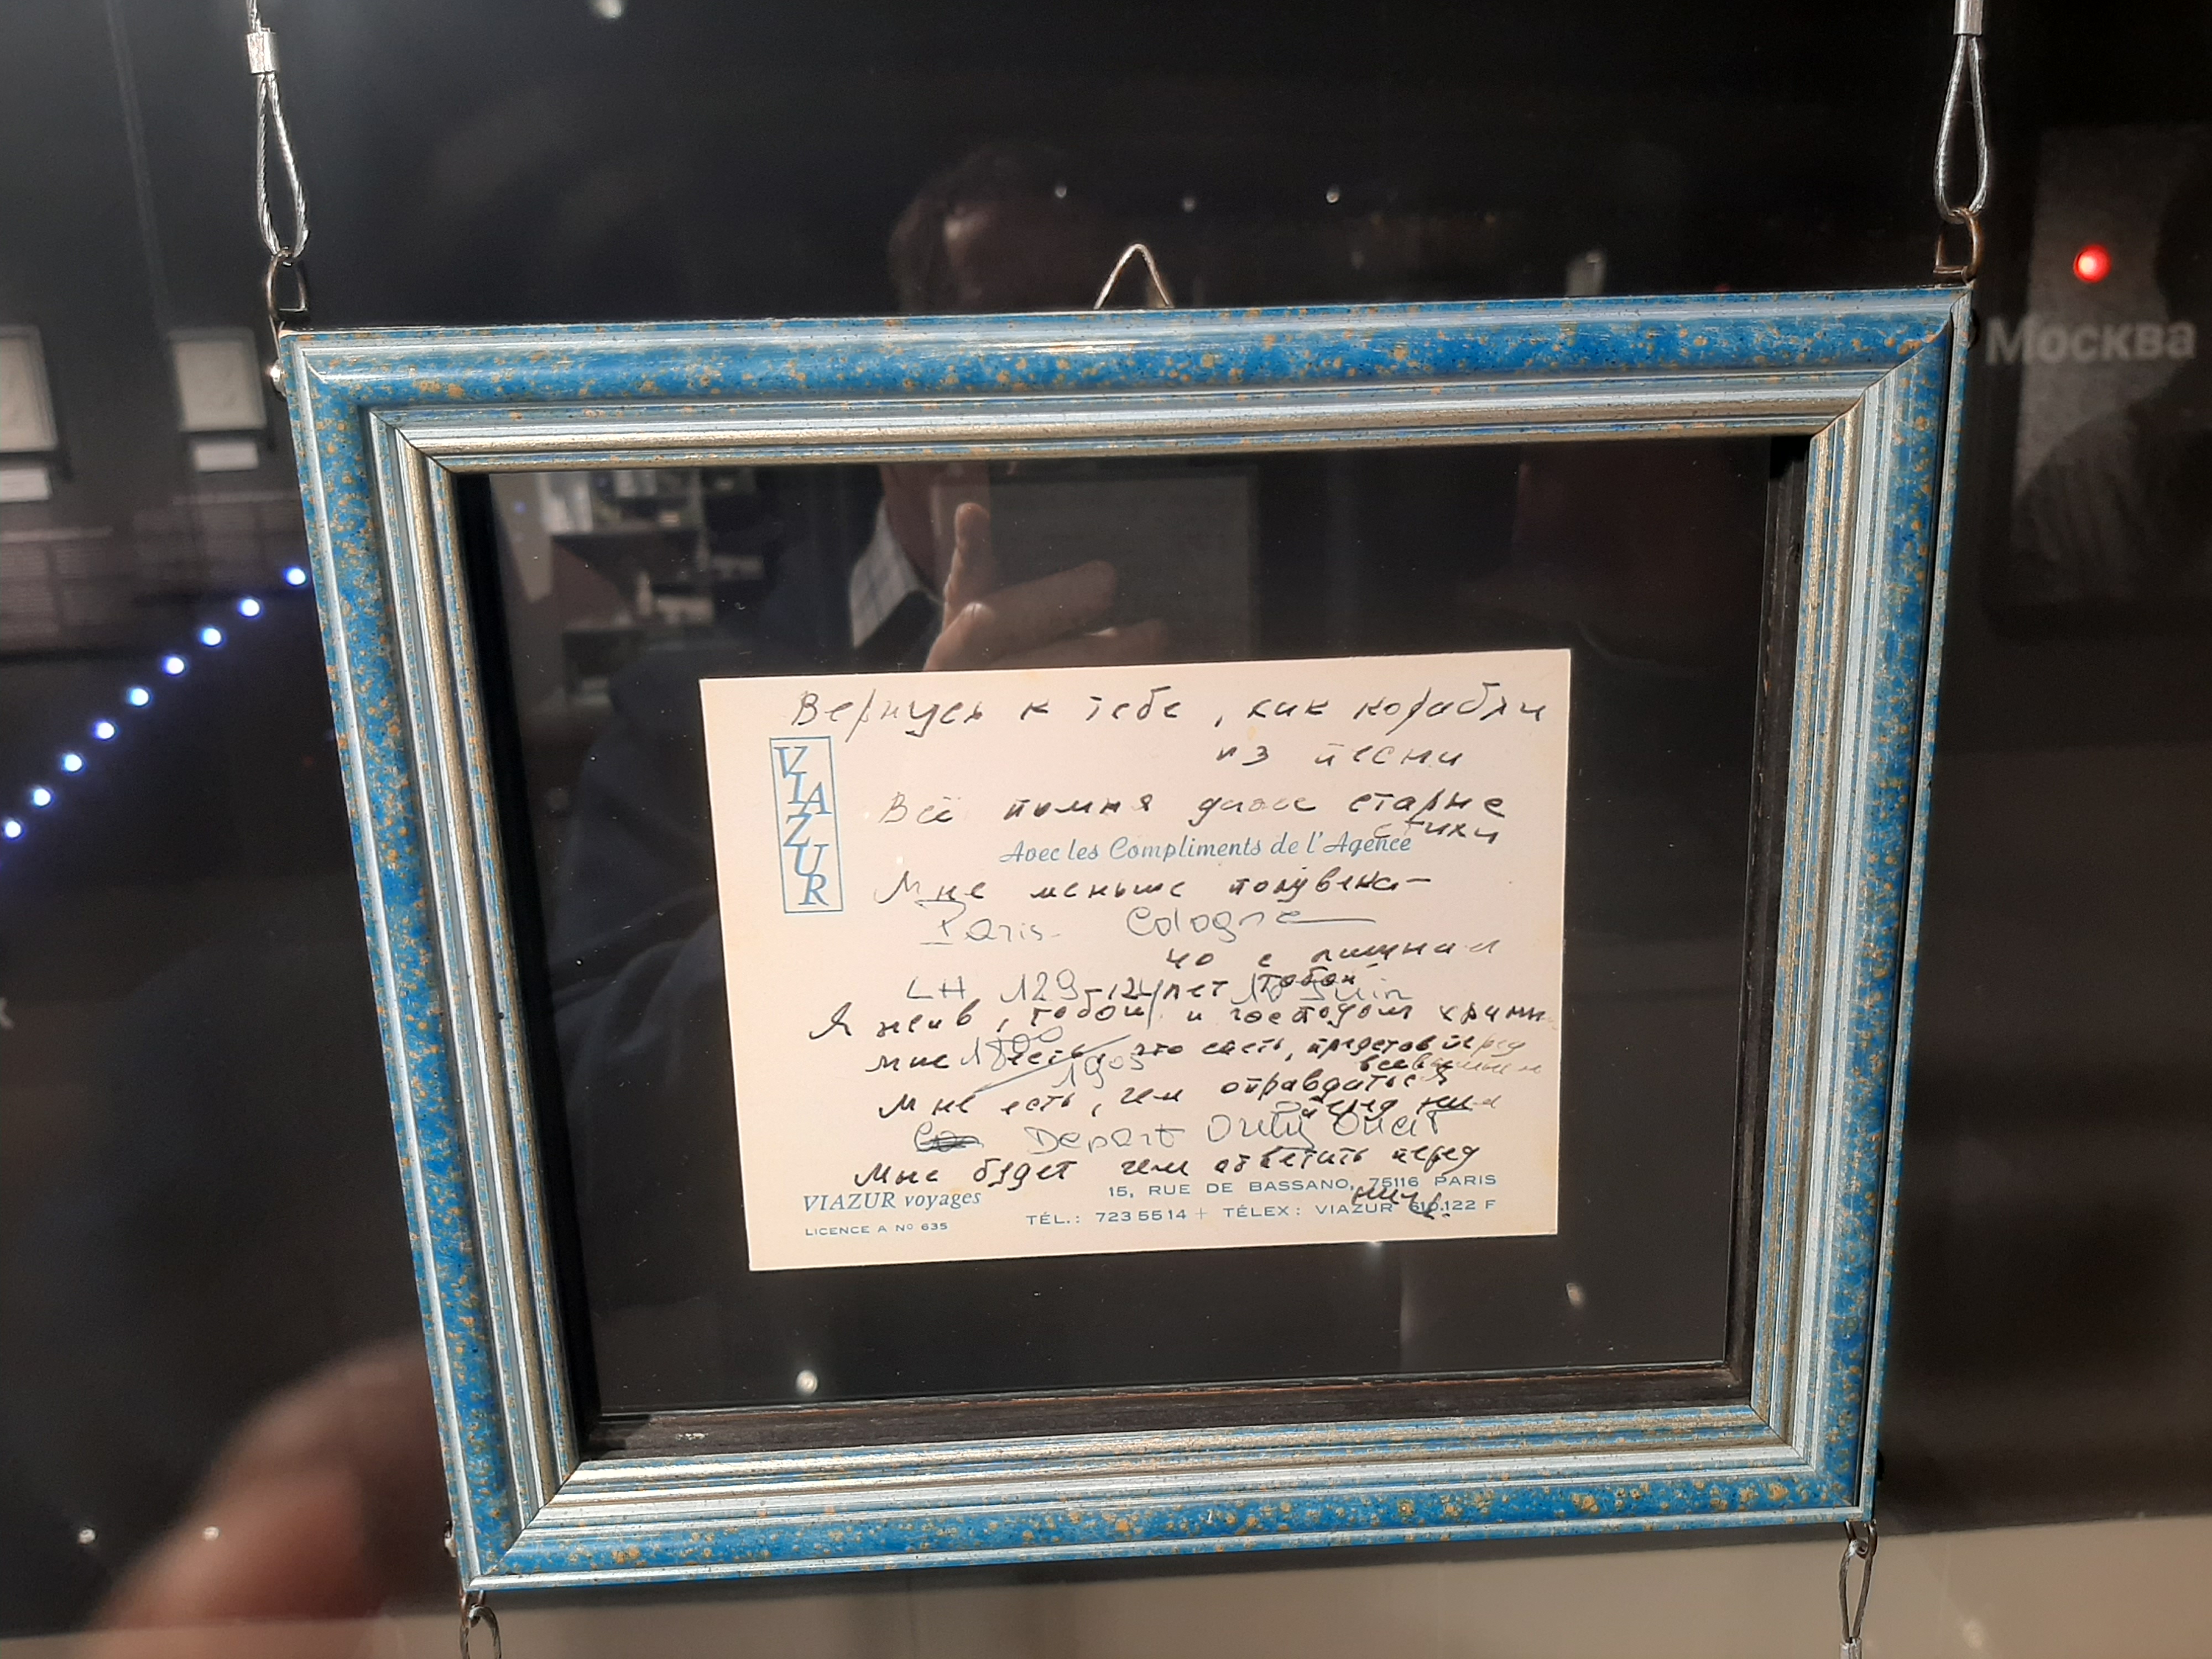 Москва
Вернусь к тебе, как корабли
из песни
VIAZUR
Всё помня даже старые
стихи
Avec les Compliments de l'Agence
Мне меньше полувека —
Paris Cologne
но с лишним
LH 129 - 12 лет тобой 10 Juin
Я жив, тобой и господом храним
мне есть, что спеть, представ перед
всевышним
1905
Мне есть, чем оправдаться
перед ним
Depart Orly Ouest
Мне будет чем ответить перед
ним.
VIAZUR voyages
15, RUE DE BASSANO, 75116 PARIS
LICENCE A Nº 635
TÉL.: 723 55 14 + TÉLEX: VIAZUR 610.122 F